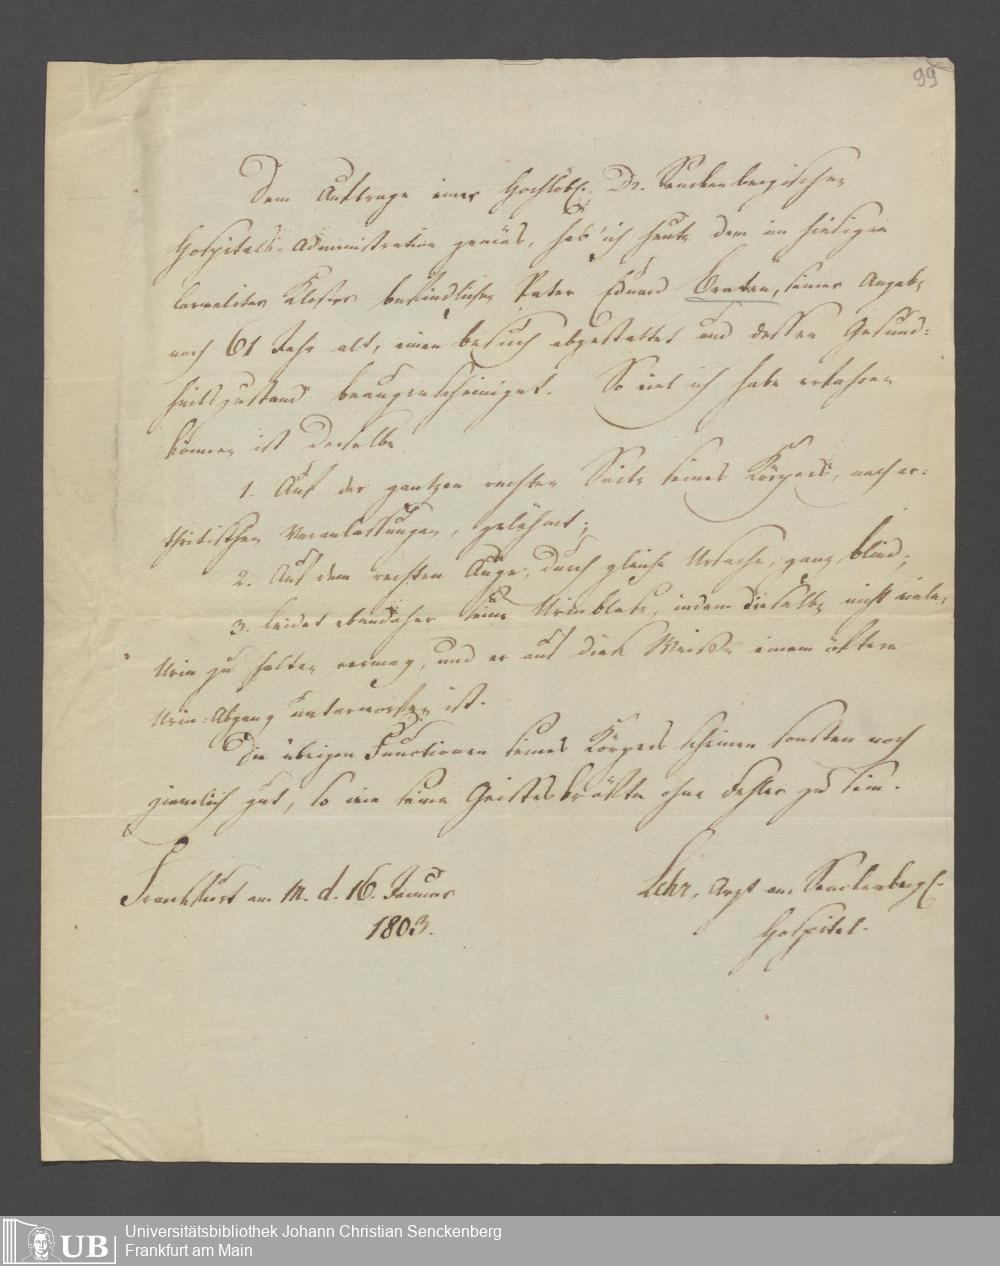 99
Dem Auftrage einer Hochlöbl. Dr. Senckenbergischen
Hospitals-Administration gemäs, hab' ich heute dem im hiesigen
Carmeliter Kloster befindlichen Pater Eduard seiner Angabe
nach 61 Jahr alt, einen besuch abgestattet und dessen Gesund=
heitszustand beaugenscheiniget. So viel ich habe erfahren
können ist derselbe
1. Auf der gantzen rechten Seite seines Körpers, nach ar=
thritischen Veranlassungen, gelähmt;
2. Auf dem rechten Auge, durch gleiche Ursache, ganz blind;
3. leidet ebendaher seine Urinblase, indem dieselbe nicht vielen
Urin zu halten vermag, und er auf diese Weise einem öftern
Urin=Abgang unterworfen ist.
Die übrigen Functionen seines Körpers scheinen sonsten noch
ziemlich gut, so wie seine Geisteskräfte ohne Fehler zu sein.
Franckfurt am M. d. 16. Januar
1803.
Lehr, Arzt am Senckenbergl.
Hospital.
UB
Universitätsbibliothek Johann Christian Senckenberg
Frankfurt am Main